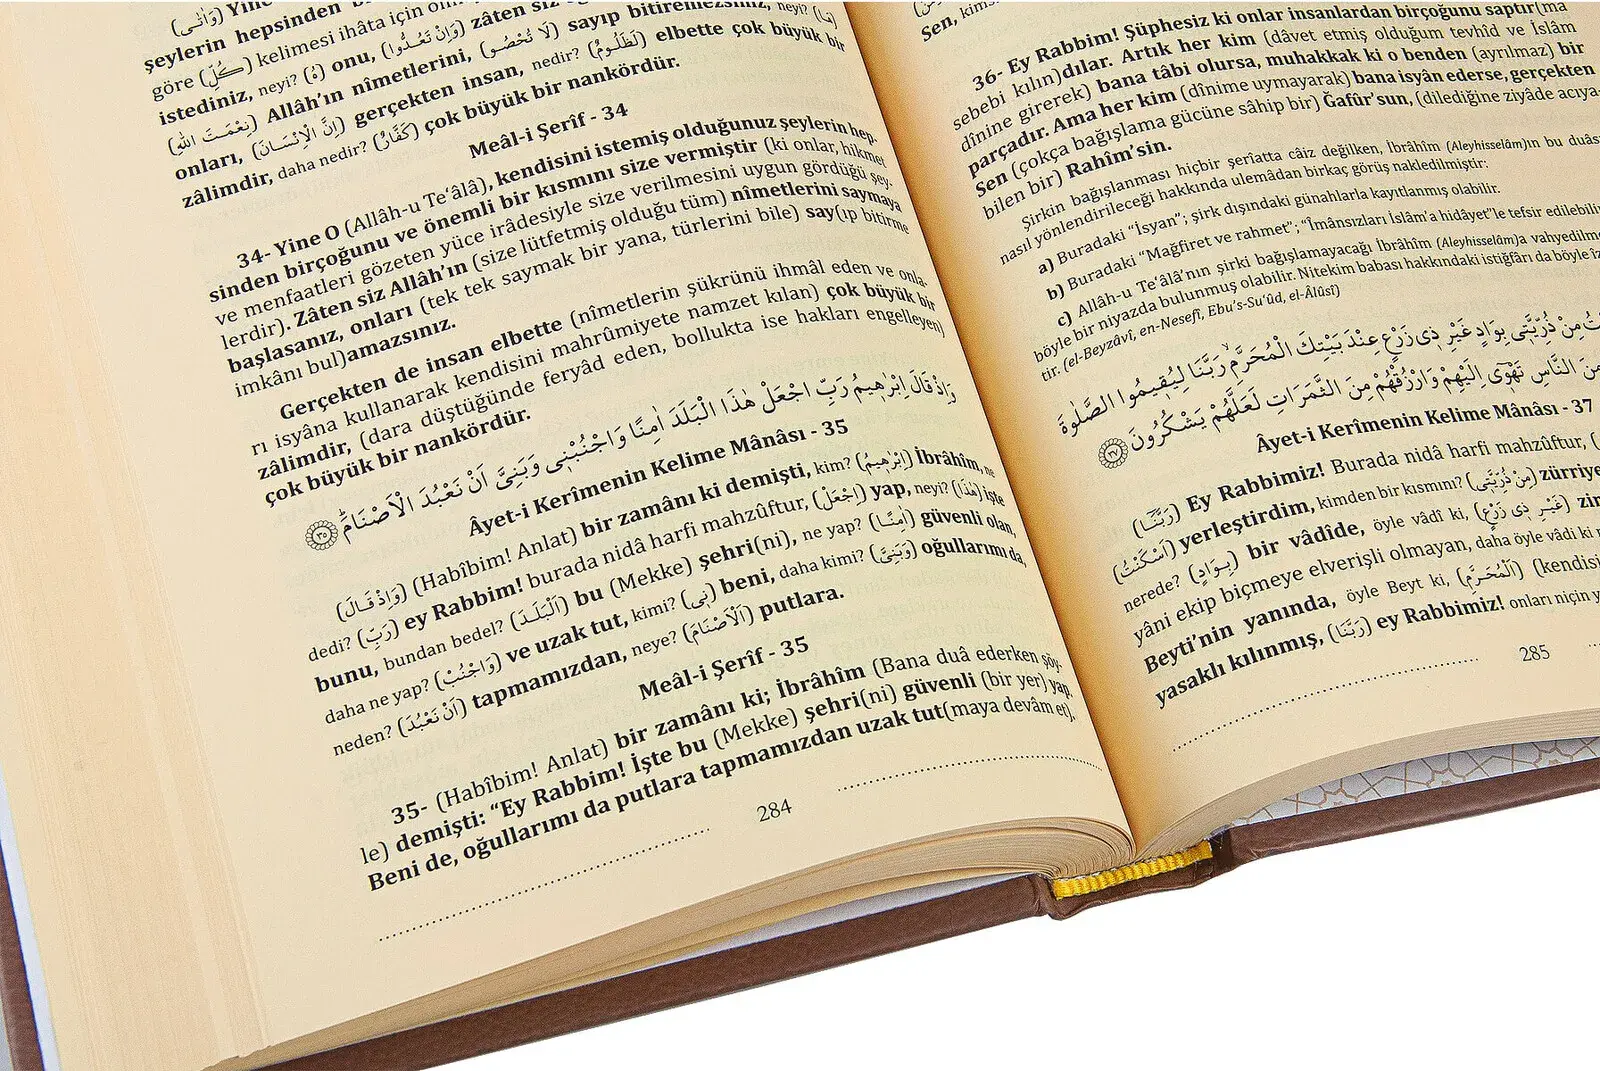 (وَاٰتٰى) Yine
şeylerin hepsinden
göre (كُلِّ) kelimesi ihâta için
istediniz, neyi? (هُ) onu, (وَاِنْ تَعُدُّوا) zâten siz
(نِعْمَتَ اللّٰهِ) Allâh'ın nîmetlerini, (لَا تُحْصُو) sayıp bitiremezsiniz, neyi? (هَا)
onları, (اِنَّ الْاِنْسَانَ) gerçekten insan, nedir? (لَظَلُومٌ) elbette çok büyük bir
zâlimdir, daha nedir? (كَفَّارٌ) çok büyük bir nankördür.
Meâl-i Şerîf - 34
34- Yine O (Allâh-u Te'âlâ), kendisini istemiş olduğunuz şeylerin hep-
sinden birçoğunu ve önemli bir kısmını size vermiştir (ki onlar, hikmet
ve menfaatleri gözeten yüce irâdesiyle size verilmesini uygun gördüğü şey-
lerdir). Zâten siz Allâh'ın (size lütfetmiş olduğu tüm) nîmetlerini saymaya
başlasanız, onları (tek tek saymak bir yana, türlerini bile) say(ıp bitirme
imkânı bul)amazsınız.
Gerçekten de insan elbette (nîmetlerin şükrünü ihmâl eden ve onla-
rı isyâna kullanarak kendisini mahrûmiyete namzet kılan) çok büyük bir
zâlimdir, (dara düştüğünde feryâd eden, bollukta ise hakları engelleyen)
çok büyük bir nankördür.
وَاِذْ قَالَ اِبْرٰه۪يمُ رَبِّ اجْعَلْ هٰذَا الْبَلَدَ اٰمِنًا وَاجْنُبْن۪ي وَبَنِيَّ اَنْ نَعْبُدَ الْاَصْنَامَۜ ﴿٣٥﴾
Âyet-i Kerîmenin Kelime Mânâsı - 35
(وَاِذْ قَالَ) (Habîbim! Anlat) bir zamânı ki demişti, kim? (اِبْرٰه۪يمُ) İbrâhîm, ne
dedi? (رَبِّ) ey Rabbim! burada nidâ harfi mahzûftur, (اجْعَلْ) yap, neyi? (هٰذَا) işte
bunu, bundan bedel? (الْبَلَدَ) bu (Mekke) şehri(ni), ne yap? (اٰمِنًا) güvenli olan,
daha ne yap? (وَاجْنُبْ) ve uzak tut, kimi? (ن۪ي) beni, daha kimi? (وَبَنِيَّ) oğullarımı da,
neden? (اَنْ نَعْبُدَ) tapmamızdan, neye? (الْاَصْنَامَ) putlara.
Meâl-i Şerîf - 35
35- (Habîbim! Anlat) bir zamânı ki; İbrâhîm (Bana duâ ederken şöy-
le) demişti: "Ey Rabbim! İşte bu (Mekke) şehri(ni) güvenli (bir yer) yap.
Beni de, oğullarımı da putlara tapmamızdan uzak tut(maya devâm et).
284
Sen,
36- Ey Rabbim! Şüphesiz ki onlar insanlardan birçoğunu saptır(ma
sebebi kılın)dılar. Artık her kim (dâvet etmiş olduğum tevhîd ve İslâm
dînine girerek) bana tâbi olursa, muhakkak ki o benden (ayrılmaz) bir
parçadır. Ama her kim (dînime uymayarak) bana isyân ederse, gerçekten
Sen (çokça bağışlama gücüne sâhip bir) Ğafûr'sun, (dilediğine ziyâde acıya-
bilen bir) Rahîm'sin.
Şirkin bağışlanması hiçbir şerîatta câiz değilken, İbrâhîm (Aleyhisselâm)ın bu duâs
nasıl yönlendirileceği hakkında ulemâdan birkaç görüş nakledilmiştir:
a) Buradaki "İsyan"; şirk dışındaki günahlarla kayıtlanmış olabilir.
b) Buradaki "Mağfiret ve rahmet"; "Îmânsızları İslâm'a hidâyet"le tefsir edilebilir
c) Allâh-u Te'âlâ'nın şirki bağışlamayacağı İbrâhîm (Aleyhisselâm)a vahyedilme
böyle bir niyazda bulunmuş olabilir. Nitekim babası hakkındaki istiğfârı da böyle îz
tir. (el-Beyzâvî, en-Nesefî, Ebu's-Su'ûd, el-Âlûsî)
مِنْ ذُرِّيَّت۪ي بِوَادٍ غَيْرِ ذ۪ي زَرْعٍ عِنْدَ بَيْتِكَ الْمُحَرَّمِۙ رَبَّنَا لِيُق۪يمُوا الصَّلٰوةَ
مِنَ النَّاسِ تَهْو۪ٓي اِلَيْهِمْ وَارْزُقْهُمْ مِنَ الثَّمَرَاتِ لَعَلَّهُمْ يَشْكُرُونَ ﴿٣٧﴾
Âyet-i Kerîmenin Kelime Mânâsı - 37
(رَبَّنَا) Ey Rabbimiz! Burada nidâ harfi mahzûftur, (
(اَسْكَنْتُ) yerleştirdim, kimden bir kısmını? (مِنْ ذُرِّيَّت۪ي) zürriye
nerede? (بِوَادٍ) bir vâdîde, öyle vâdî ki, (غَيْرِ ذ۪ي زَرْعٍ) zir
yâni ekip biçmeye elverişli olmayan, daha öyle vâdî ki n
Beyti'nin yanında, öyle Beyt ki, (الْمُحَرَّمِ) (kendisi
yasaklı kılınmış, (رَبَّنَا) ey Rabbimiz! onları niçin y
285